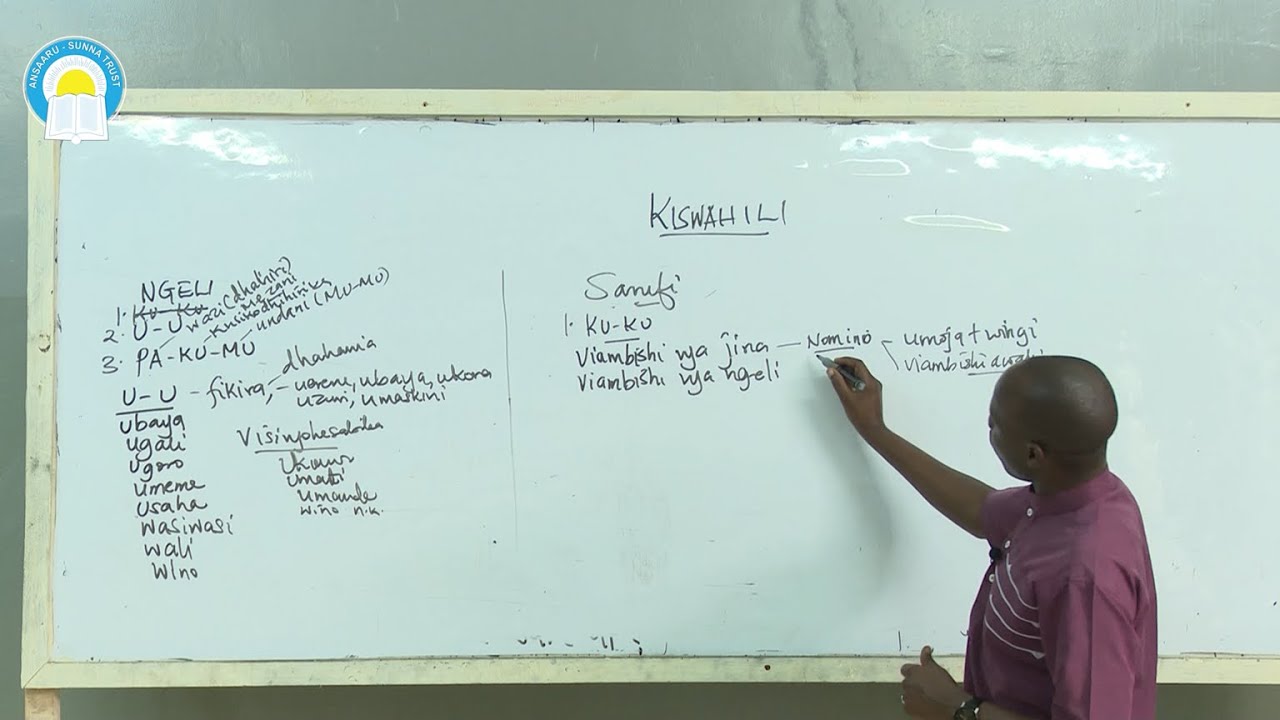 ANSAARU - SUNNA TRUST
KISWAHILI
NGELI
1. KU-KU
2. U-U wazi (dhahiri)
mezani
kusikodhihirika
3. PA-KU-MU undani (MU-MU)
U-U - fikira - dhahania
- uerevu, ubaya, ukora
uzuri, umaskini
ubaya
ugali
ugoro
umeme
usaha
wasiwasi
wali
wino
Visivyohesabika
umati
umande
wino n.k.
Sarufi
1. KU-KU
Viambishi vya jina - Nomino - umoja + wingi
viambishi awali
Viambishi vya ngeli